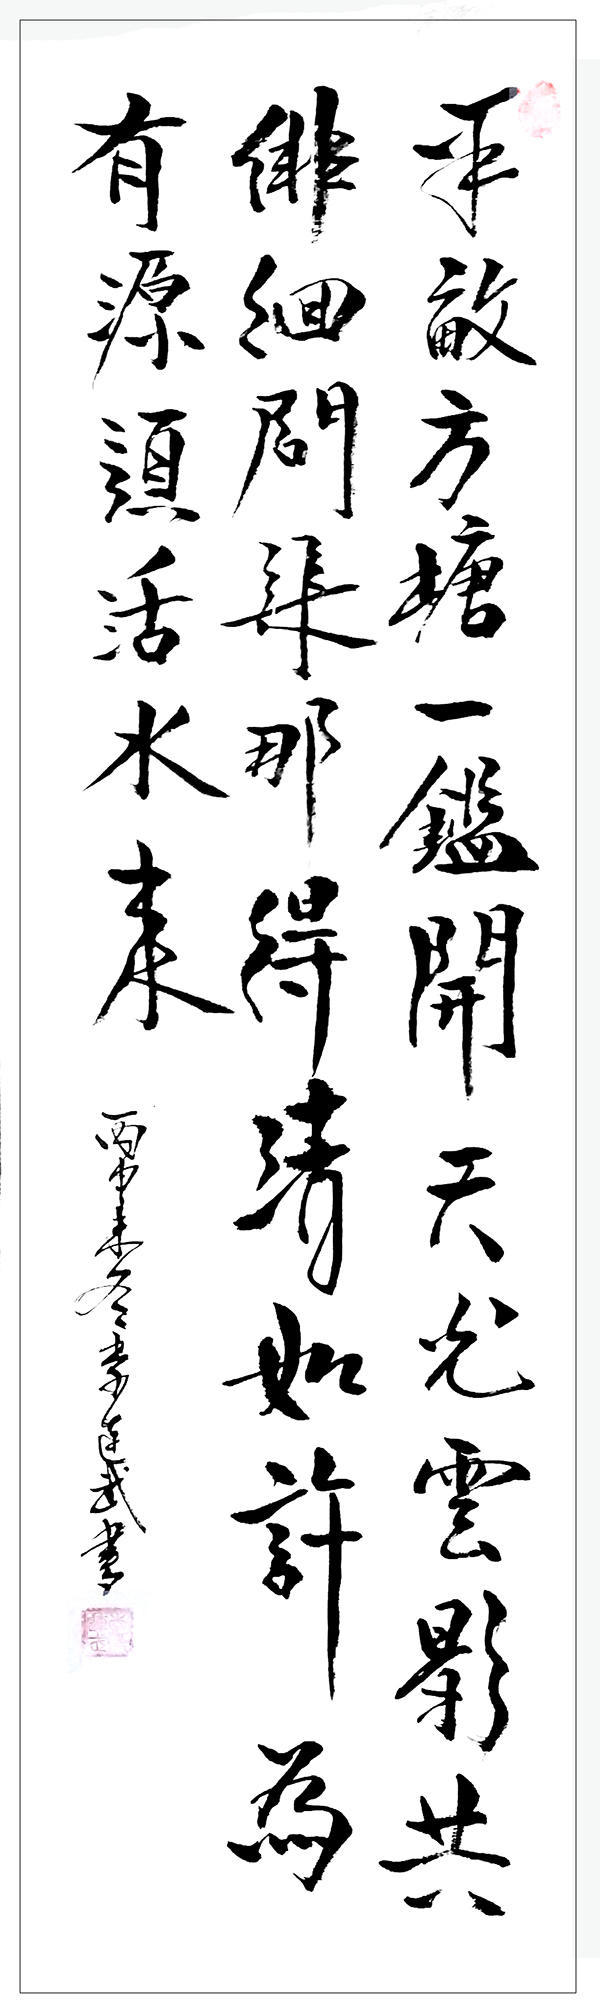 半畝方塘一鑑開天光雲影共
徘徊問渠那得清如許為
有源頭活水來
丙申末冬李连武書